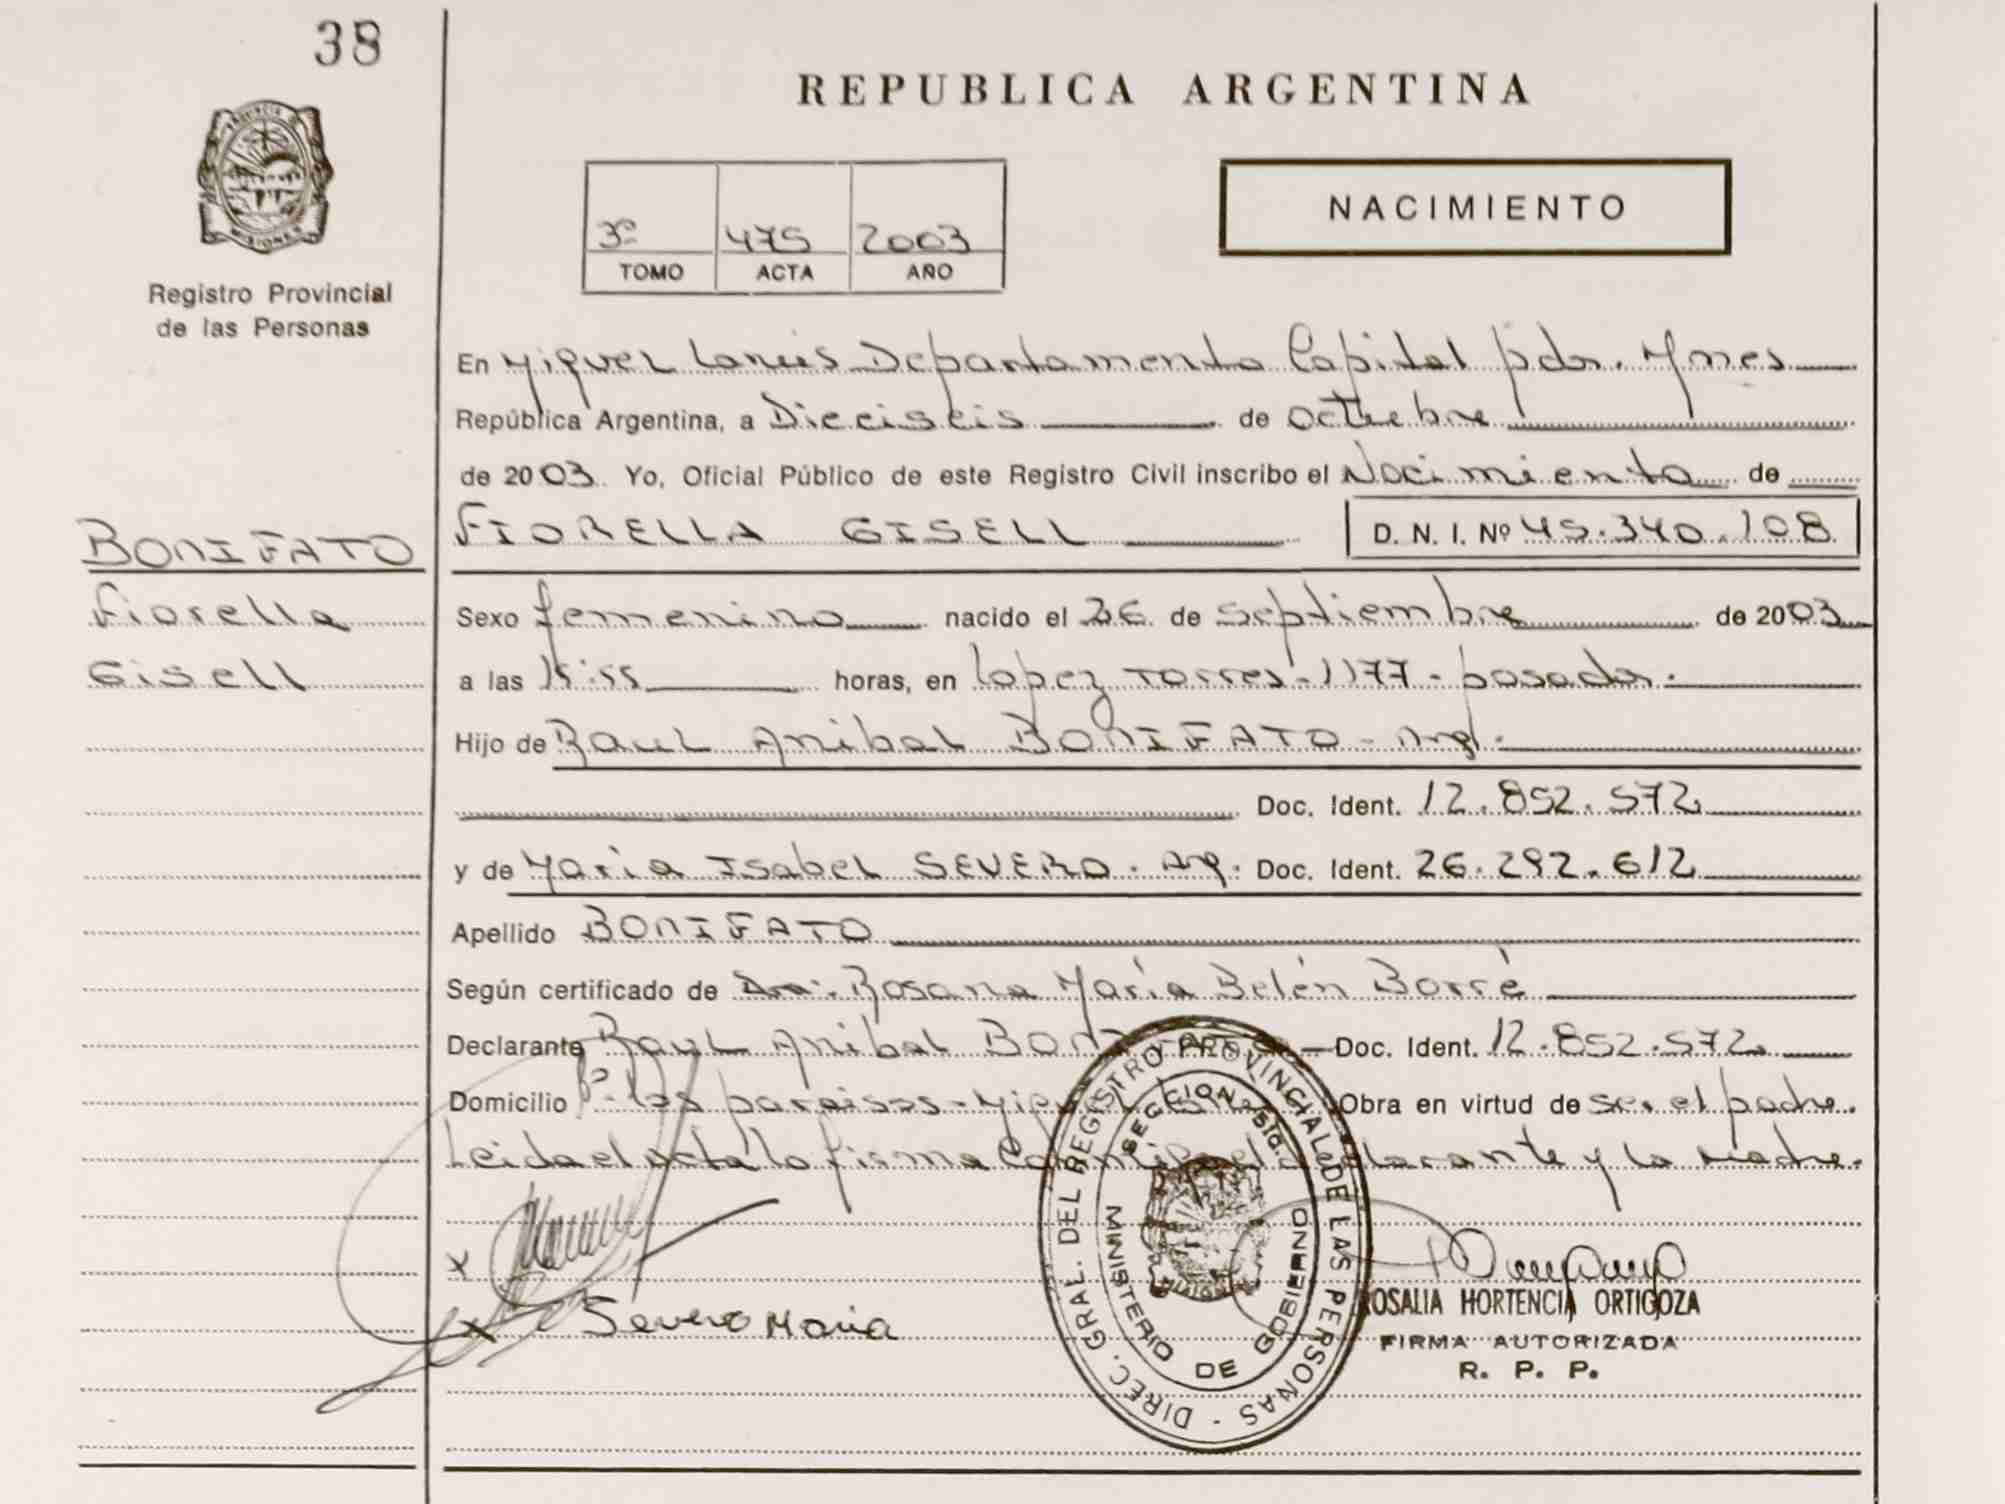 38
REPUBLICA ARGENTINA
PROVINCIA DE
MISIONES
Registro Provincial
de las Personas
3º 475 2003
TOMO ACTA AÑO
NACIMIENTO
En Miguel Lanús Departamento Capital pcia. Mnes
República Argentina, a Dieciseis de octubre
de 2003. Yo, Oficial Público de este Registro Civil inscribo el Nacimiento de
BONIFATO
Fiorella
Gisell
FIORELLA GISELL D. N. I. Nº 45.340.108
Sexo femenino nacido el 26 de septiembre de 2003
a las 15:55 horas, en Lopez Torres - 1177 - posadas.
Hijo de Raul Anibal BONIFATO - Arg.
Doc. Ident. 12.852.572
y de Maria Isabel SEVERO. Arg. Doc. Ident. 26.292.612
Apellido BONIFATO
Según certificado de Dra. Rosana María Belén Borré
Declarante Raul Anibal Doc. Ident. 12.852.572
Domicilio los paraisos - Obra en virtud de ser el padre.
Leida el acta la firma declarante y la madre.
x
x Severo Maria
DIREC. GRAL. DEL REGISTRO PROVINCIAL DE LAS PERSONAS -
MINISTERIO DE GOBIERNO
ROSALIA HORTENCIA ORTIGOZA
FIRMA AUTORIZADA
R. P. P.